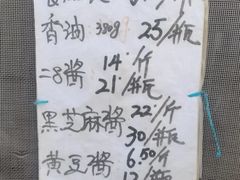 香油 380g 25/瓶
二八酱 14·/斤
21·/瓶
黑芝麻酱 22·/斤
30/瓶
黄豆酱 6.50/斤
12/瓶